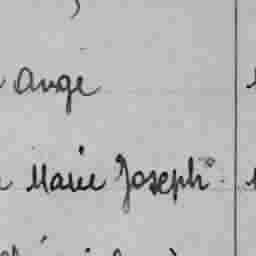 Ange
Marie Joseph